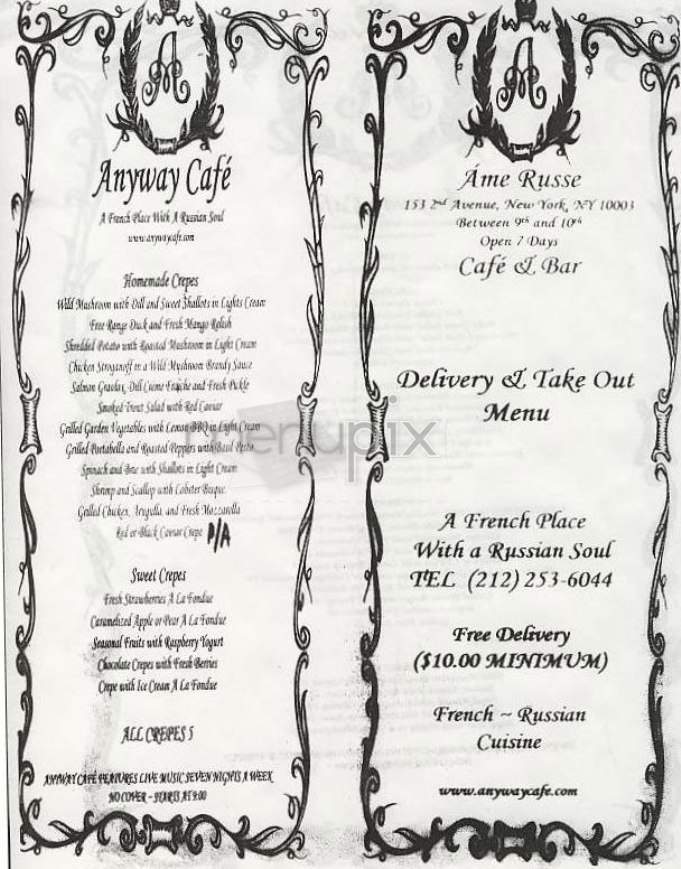 A
Anyway Café
A French Place With A Russian Soul
www.anywaycafe.com
Homemade Crepes
Wild Mushroom with Dill and Sweet Shallots in Lights Cream
Free Range Duck and Fresh Mango Relish
Shredded Potato with Roasted Mushroom in Light Cream
Chicken Stroganoff in a Wild Mushroom Brandy Sauce
Salmon Gravlax, Dill Creme Fraiche and Fresh Pickle
Smoked Trout Salad with Red Caviar
Grilled Garden Vegetables with Lemon BBQ in Light Cream
Grilled Portabella and Roasted Peppers with Basil Pesto
Spinach and Brie with Shallots in Light Cream
Shrimp and Scallop with Lobster Bisque
Grilled Chicken, Arugulla and Fresh Mozzarella
Red or Black Caviar Crepe P/A
Sweet Crepes
Fresh Strawberries A La Fondue
Caramelized Apple or Pear A La Fondue
Seasonal Fruits with Raspberry Yogurt
Chocolate Crepes with Fresh Berries
Crepe with Ice Cream A La Fondue
ALL CREPES 5
ANYWAY CAFÉ FEATURES LIVE MUSIC SEVEN NIGHTS A WEEK
NO COVER – STARTS AT 9:00
A
Áme Russe
153 2nd Avenue, New York, NY 10003
Between 9th and 10th
Open 7 Days
Café & Bar
Delivery & Take Out
Menu
A French Place
With a Russian Soul
TEL (212) 253-6044
Free Delivery
($10.00 MINIMUM)
French ~ Russian
Cuisine
www.anywaycafe.com
menupix